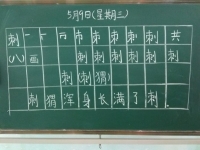 5月9日(星期三)
刺 一 丆 币 束 束 刺 刺 共
(八)画 刺 刺 刺 刺 刺
刺(刺猬)
刺猬浑身长满了刺.